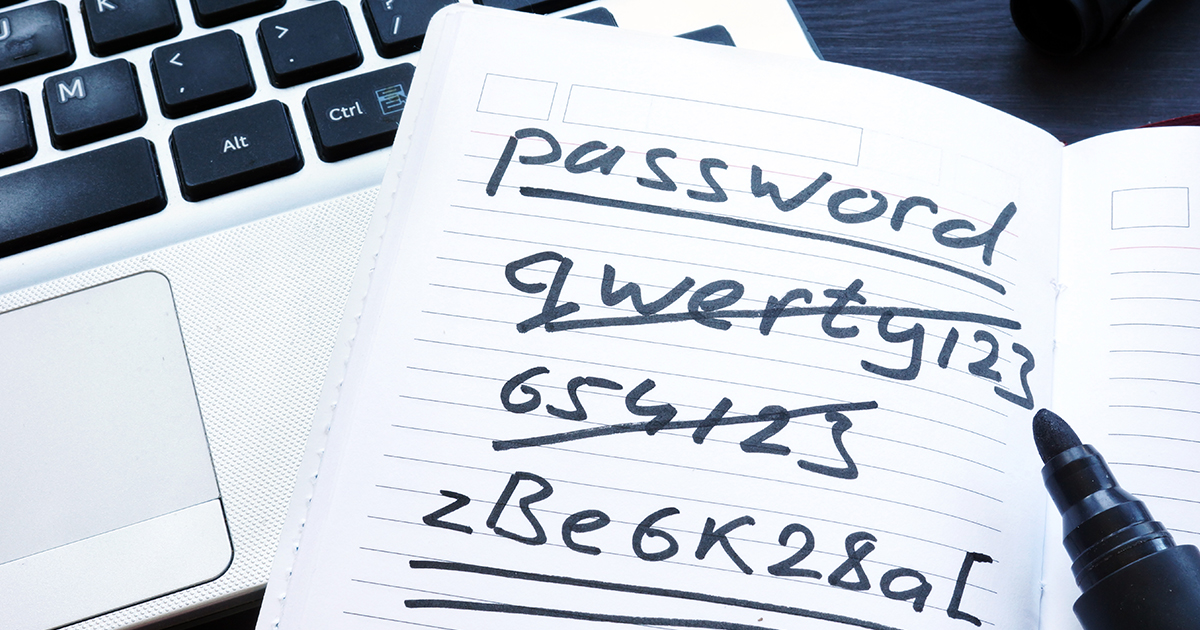 K
< ,
> .
? /
M
Alt
Ctrl
password
qwerty123
654123
zBe6K28a[